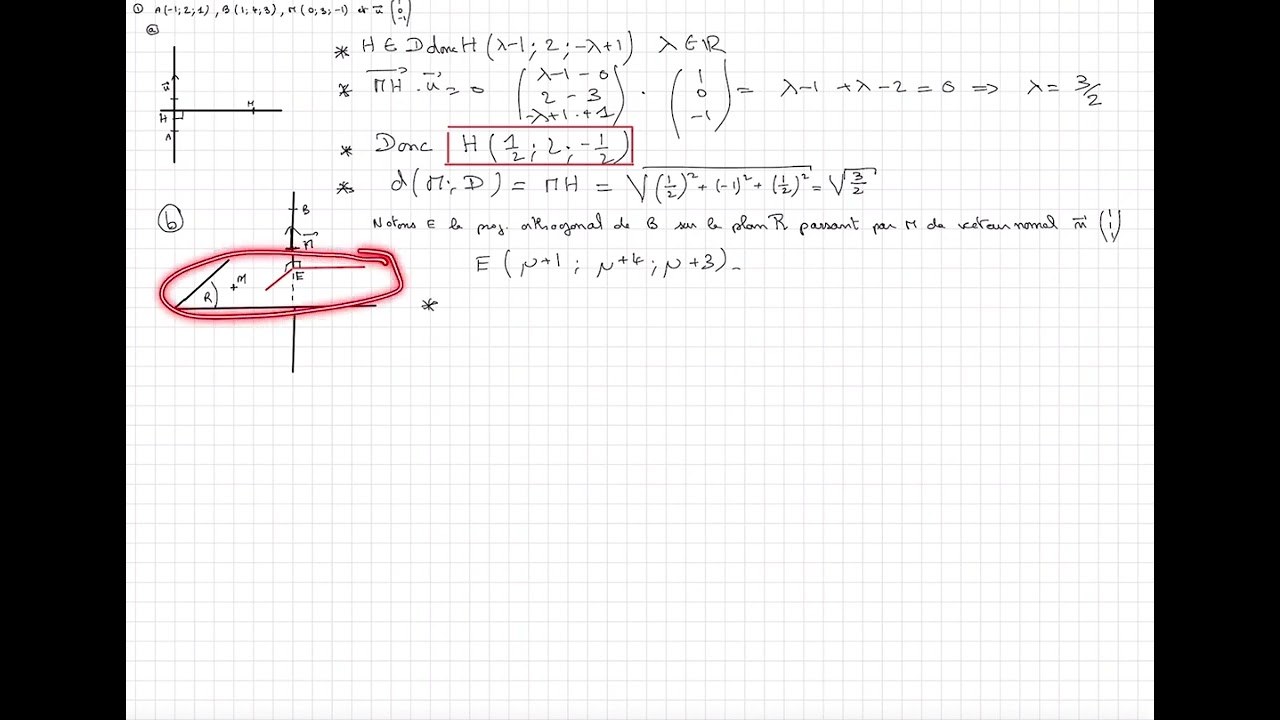 ① A(-1;2;1), B(1;4;3), M(0;3;-1) et u⃗ (1 0 -1)
ⓐ
* H ∈ D donc H (λ-1 ; 2 ; -λ+1) λ ∈ ℝ
* MH⃗ . u⃗ = 0 (λ-1-0 2-3 -λ+1+1) . (1 0 -1) = λ-1 +λ-2 = 0 => λ = 3/2
* Donc H (1/2 ; 2 ; -1/2)
* d(M; D) = MH = √((1/2)² + (-1)² + (1/2)²) = √(3/2)
u⃗
M
H
A
ⓑ Notons E le proj. orthogonal de B sur le plan R passant par M de vecteur normal n⃗ (1 1 1)
E (μ+1 ; μ+4 ; μ+3).
*
B
n⃗
E
M
R